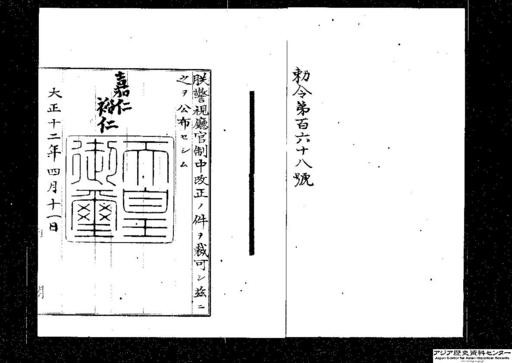 勅令第百六十八號
朕警視廳官制中改正ノ件ヲ裁可シ茲ニ
之ヲ公布セシム
嘉仁
裕仁
天皇
御璽
大正十二年四月十一日
アジア歴史資料センター
Japan Center for Asian Historical Records